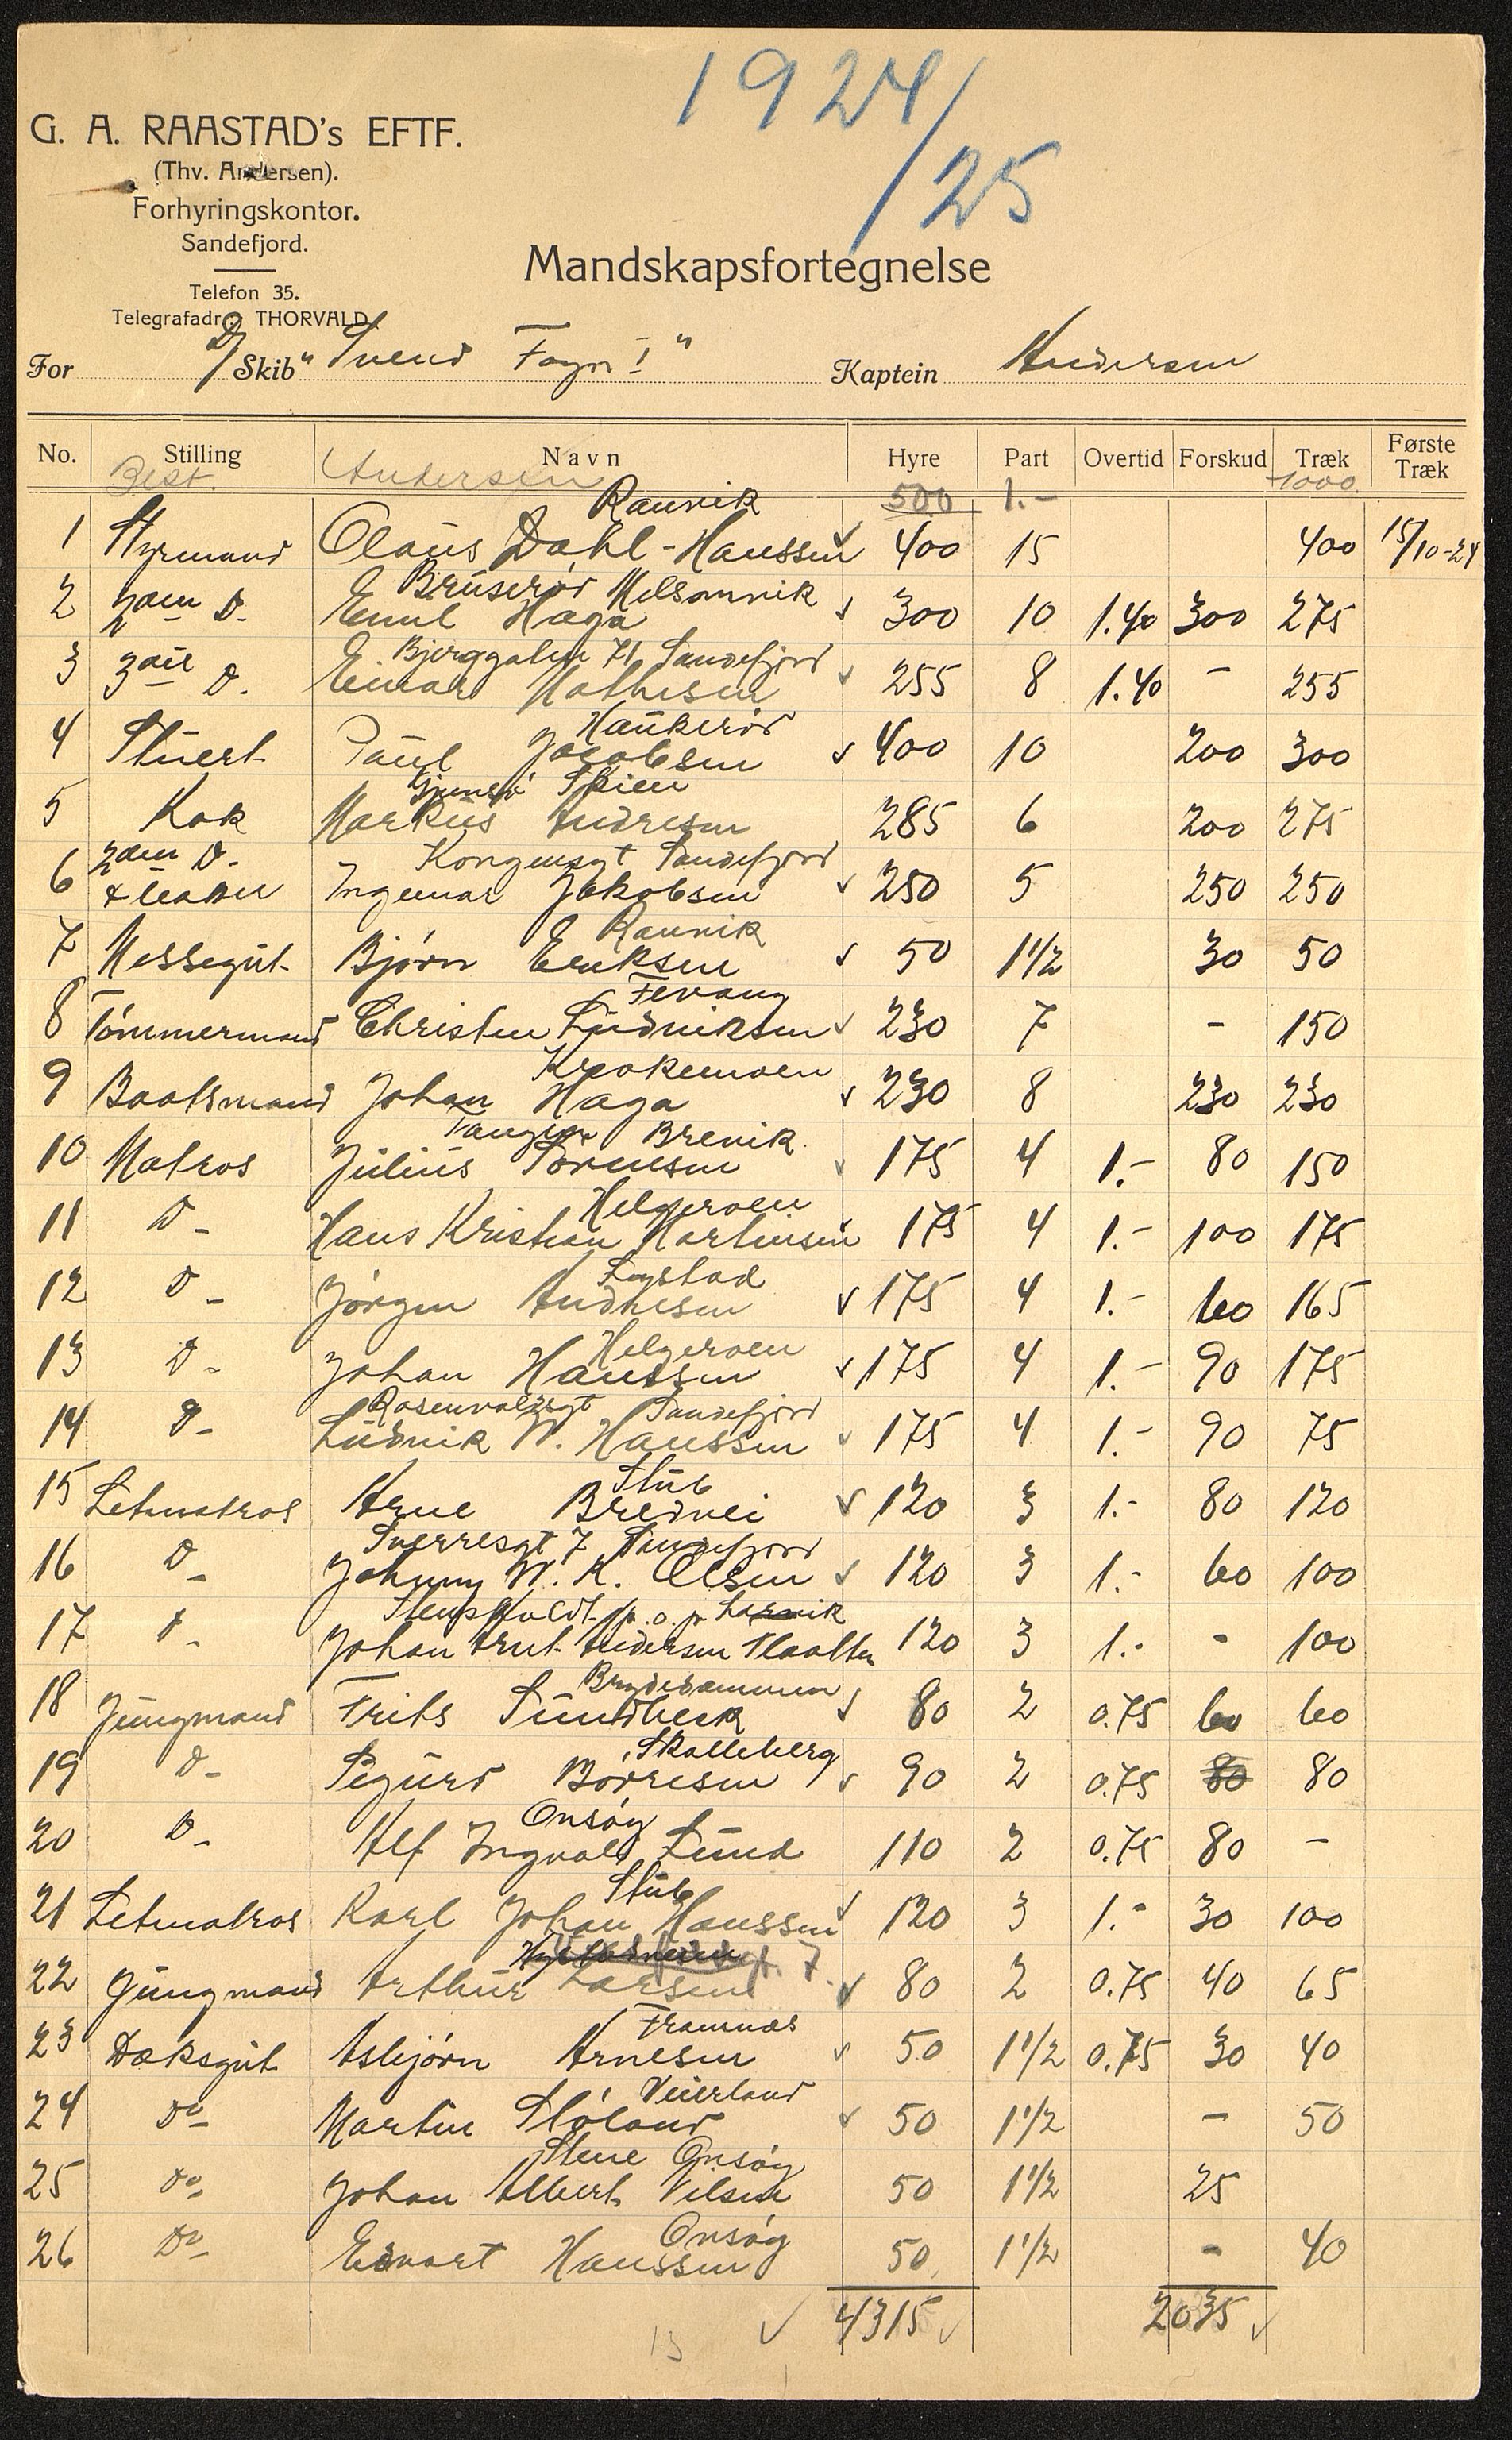 1924/25
G. A. RAASTAD's EFTF.
(Thv. Andersen).
Forhyringskontor.
Sandefjord.
Telefon 35.
Telegrafadr.: THORVALD.
Mandskapsfortegnelse
For D/Skib "Svend Foyn I" Kaptein Andersen
No. Stilling Navn Hyre Part Overtid Forskud Træk Første Træk
Best. Andersen 500 1.- 1000
Ranvik
1 Styrmand Olaus Dahl-Hanssen 400 15 400 15/10-24
Bruserød Melsomvik
2 2den Do. Emil Haga 300 10 1.40 300 275
Bjerggaten 71 Sandefjord
3 3die Do. Einar Mathisen 255 8 1.40 - 255
Haukerød
4 Stuert Paul Jacobsen 400 10 200 300
Gjemsø Skien
5 Kok Markus Andresen 285 6 200 275
2den Do. Kongensgt Sandefjord
6 & Ingemar Jakobsen 250 5 250 250
Ranvik
7 Messegut Bjørn Eriksen 50 1 1/2 30 50
Fevang
8 Tømmermand Christen Ludviksen 230 7 - 150
Krokemoen
9 Baatsmand Johan Haga 230 8 230 230
Tangen Brevik
10 Matros Julius Sørensen 175 4 1.- 80 150
Helgeroen
11 Do- Hans Kristian Martinsen 175 4 1.- 100 175
Lystad
12 Do- Jørgen Andresen 175 4 1.- 60 165
Helgeroen
13 Do- Johan Hanssen 175 4 1.- 90 175
Rosenvoldsgt Sandefjord
14 Do- Ludvik W. Hanssen 175 4 1.- 90 75
Stub
15 Letmatros Arne Bredvei 120 3 1.- 80 120
Sverresgt 7 Sandefjord
16 Do- Johnny W. K. Olsen 120 3 1.- 60 100
p. o. p. Larvik
17 Do- Johan Arnt Andersen Klaatten 120 3 1.- - 100
Brydedammen
18 Jungmand Frits Sundbeck 80 2 0.75 60 60
Skalleberg
19 Do- Sigurd Borresen 90 2 0.75 80 80
Onsøy
20 Do- Alf Ingvald Lund 110 2 0.75 80 -
Stub
21 Letmatros Karl Johan Hanssen 120 3 1.- 30 100
22 Jungmand Arthur Larsen 80 2 0.75 40 65
Framnæs
23 Dæksgut Asbjørn Arnesen 50 1 1/2 0.75 30 40
Veierland
24 Do- Martin Støland 50 1 1/2 - 50
Stene Onsøy
25 Do- Johan Albert Nilsen 50 1 1/2 25
Onsøy
26 Do- Edvart Hanssen 50 1 1/2 - 40
4315 2035
13